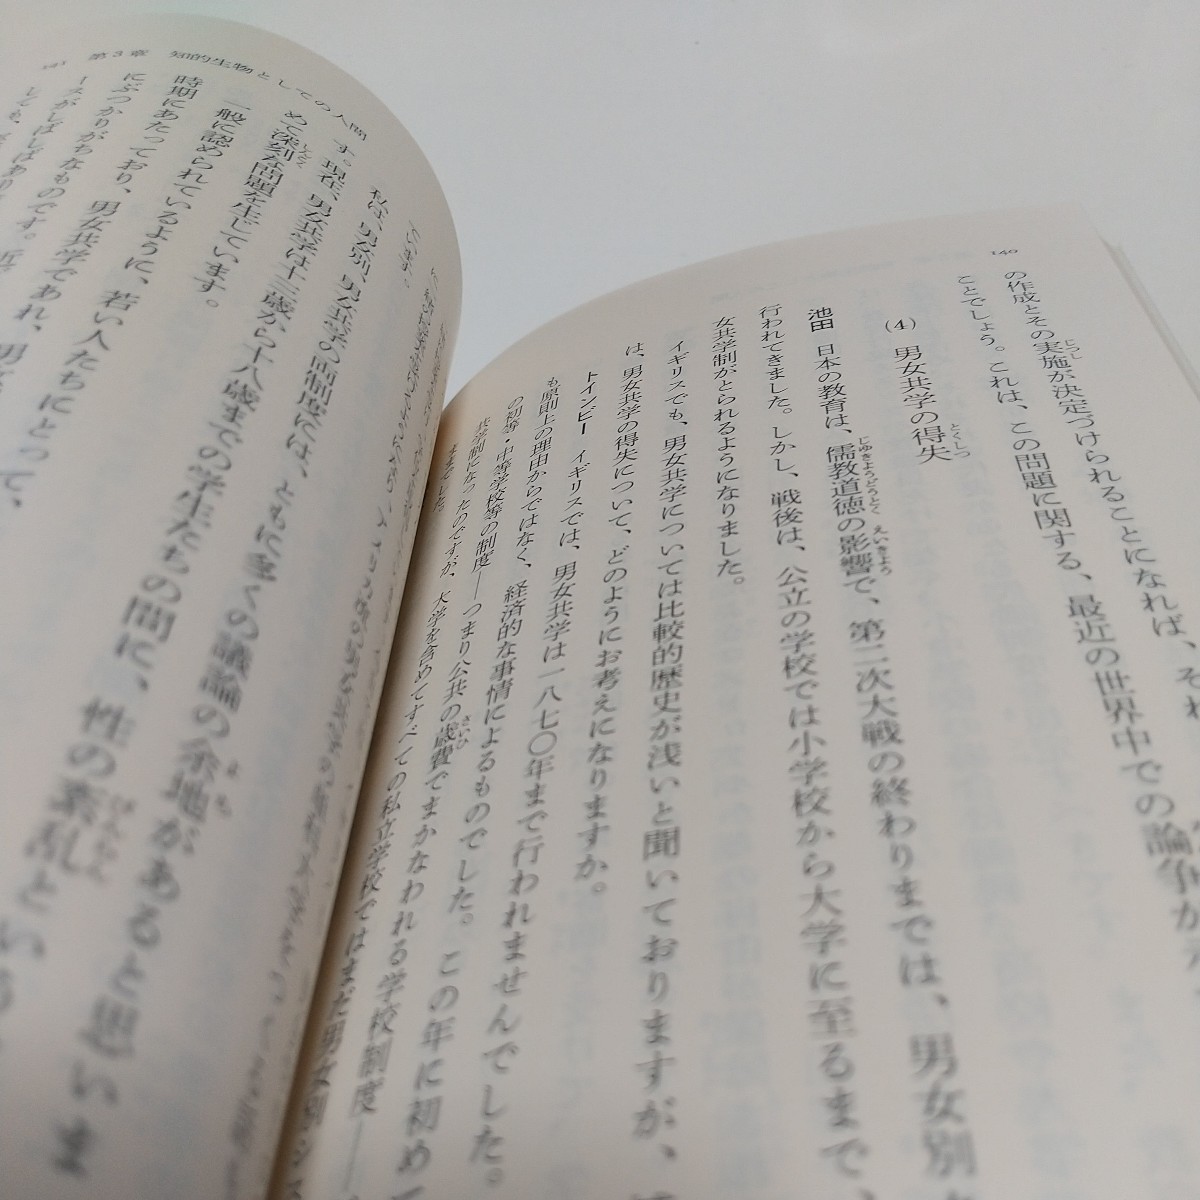 140
の作成とその実施が決定づけられることになれば、それ
ことでしょう。これは、この問題に関する、最近の世界中での論争が
(4) 男女共学の得失
池田 日本の教育は、儒教道徳の影響で、第二次大戦の終わりまでは、男女別
行われてきました。しかし、戦後は、公立の学校では小学校から大学に至るまで、
女共学制がとられるようになりました。
イギリスでも、男女共学については比較的歴史が浅いと聞いておりますが、
は、男女共学の得失について、どのようにお考えになりますか。
トインビー イギリスでは、男女共学は一八七〇年まで行われませんでした。
も原則上の理由からではなく、経済的な事情によるものでした。この年に初めて
の初等・中等学校等の制度――つまり公共の歳費でまかなわれる学校制度――
共学制になったのですが、大学を含めてすべての私立学校ではまだ男女別シ
ままでした。
141 第3章 知的生物としての人間
ています。
私は、男女別、男女共学の両制度には、ともに多くの議論の余地があると思いま
す。現在、男女共学は十三歳から十八歳までの学生たちの間に、性の紊乱という
めて深刻な問題を生じています。
一般に認められているように、若い人たちにとって、
時期にあたっており、男女共学であれ、男
にぶつかりがちなものです。近
ースがしばしばあり
しても、